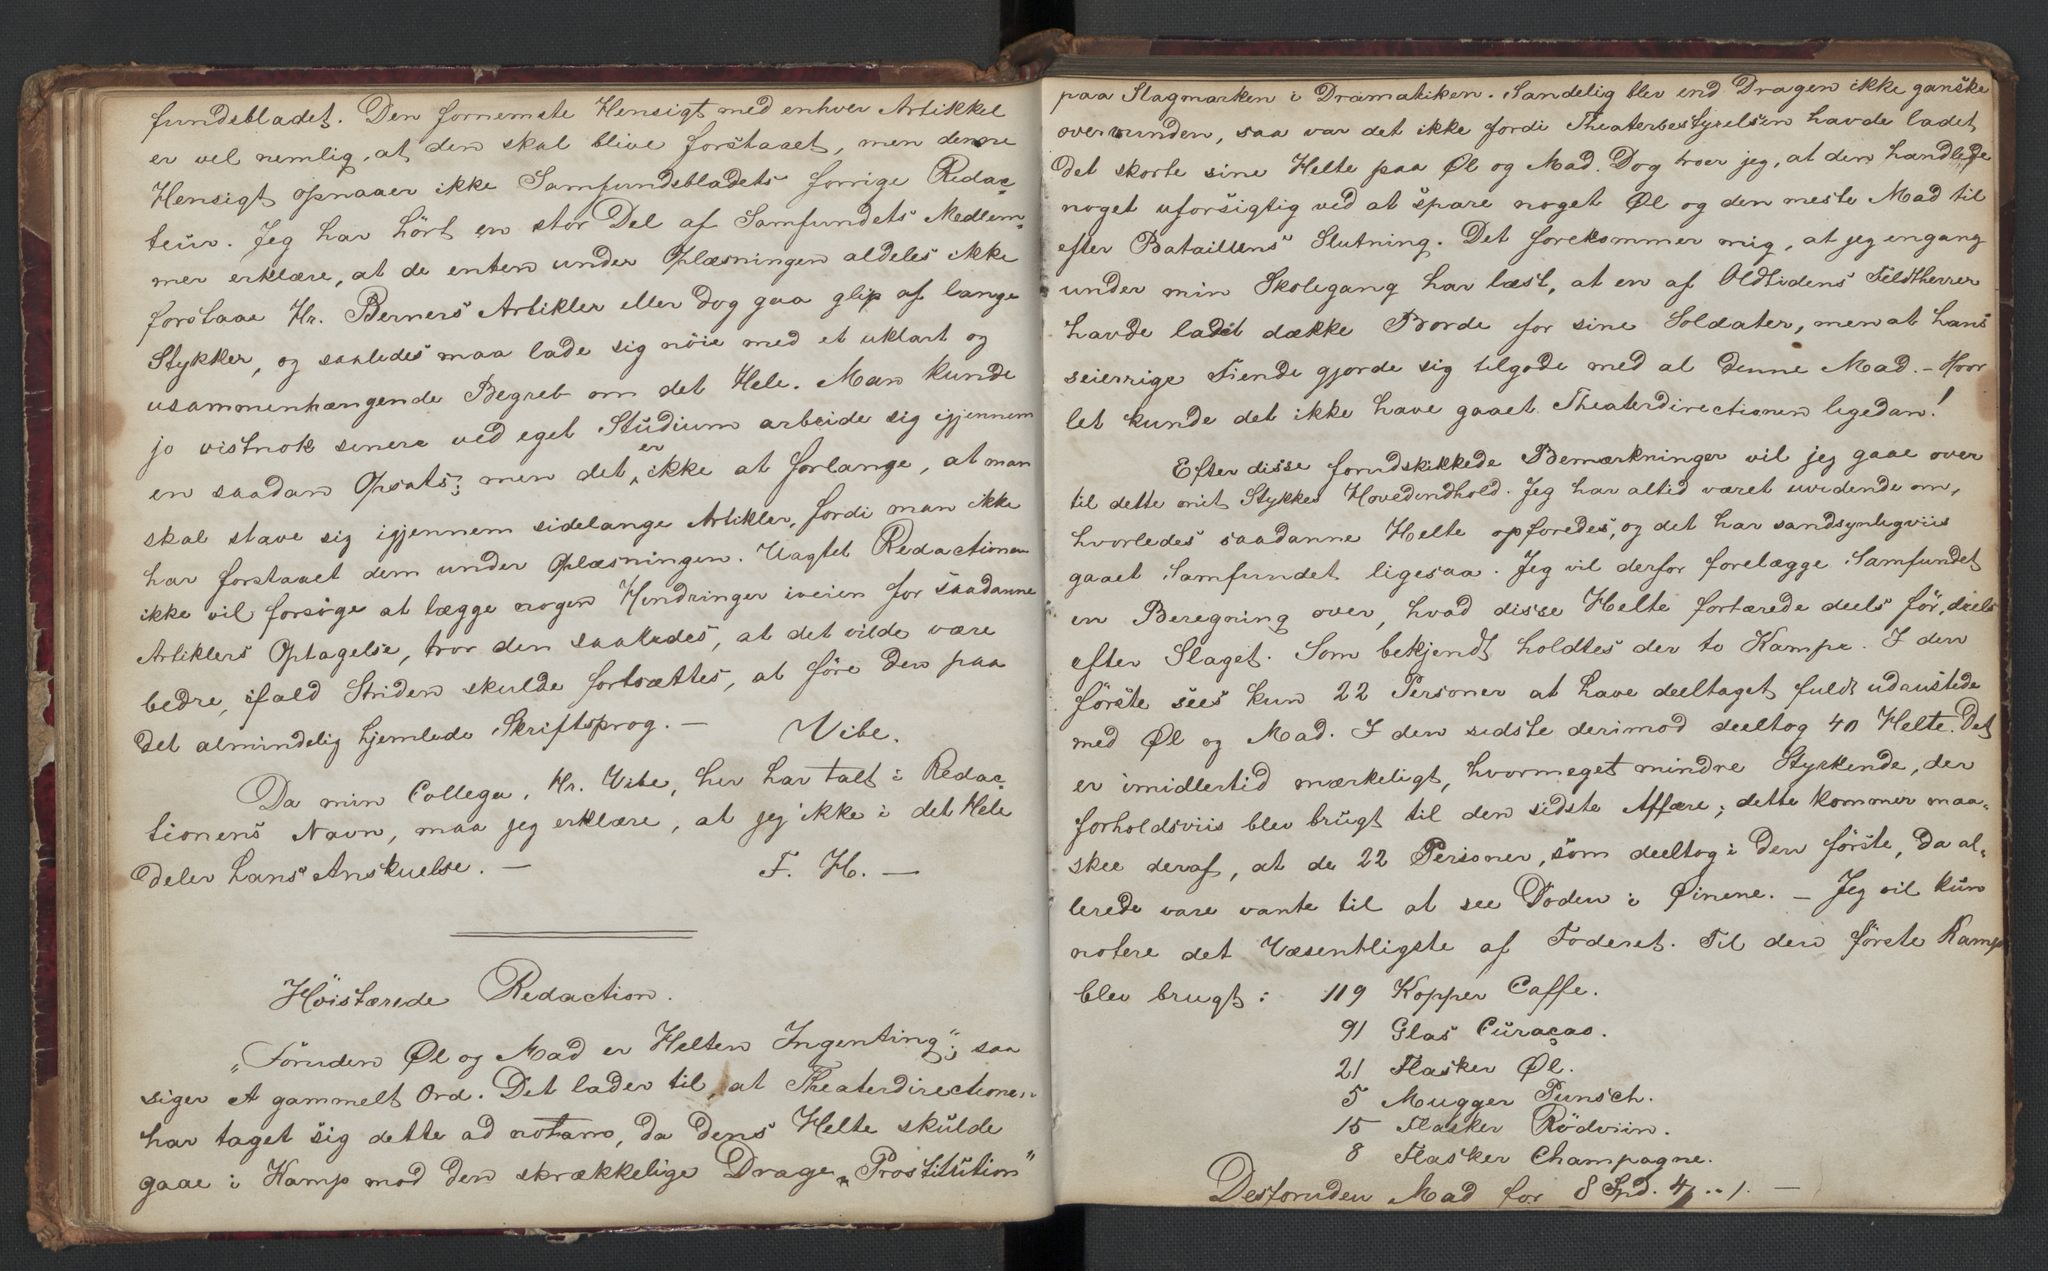 fundsbladet. Den fornemste Hensigt med enhver Artikkel
er vel nemlig, at den skal blive forstaaet, men denne
Hensigt opnaaer ikke Samfundsbladets forrige Redac-
teur. Jeg har hört en stor Del af Samfundets Medlem-
mer erklære, at de enten under Oplæsningen aldeles ikke
forstaae Hr. Berners Artikler eller dog gaa glip af lange
Stykker, og saaledes maa lade sig nöie med et uklart og
usammenhængende Begreb om det Hele. Man kunde
jo vistnok senere ved eget Studium arbeide sig igjennem
en saadan Opsats; men det er ikke at forlange, at man
skal stave sig igjennem sidelange Artikler, fordi man ikke
har forstaaet dem under Oplæsningen. Uagtet Redactionen
ikke vil forsöge at lægge nogen Hindringer iveien for saadanne
Artiklers Optagelse, tror den saaledes, at det vilde være
bedre, ifald Striden skulde fortsættes, at före den paa
det almindelig hjemlede Skriftsprog. — Vibe.
Da min Collega, Hr. Vibe, her har talt i Redac-
tionens Navn, maa jeg erklære, at jeg ikke i det Hele
deler hans Anskuelse. — F. H. —
Höistærede Redaction.
„Foruden Øl og Mad er Helten Ingenting"; saa
siger et gammelt Ord. Det lader til, at Theaterdirectionen
har taget sig dette ad notam, da dens Helte skulde
gaae i Kamp mod den skrækkelige Drage „Prostitution"
paa Slagmarken i Dramatiken. Sandelig blev end Dragen ikke ganske
overvunden, saa var det ikke fordi Theaterbestyrelsen havde ladet
det skorte sine Helte paa Øl og Mad. Dog troer jeg, at den handlede
noget uforsigtig ved at spare noget Øl og den meste Mad til
efter Bataillens Slutning. Det forekommer mig, at jeg engang
under min Skolegang har læst, at en af Oldtidens Feldtherrer
havde ladet dække Borde for sine Soldater, men at hans
seierrige Fiende gjorde sig tilgode med al denne Mad. — Hvor
let kunde det ikke have gaaet Theaterdirectionen ligedan!
Efter disse forudskikkede Bemærkninger vil jeg gaae over
til dette mit Stykkes Hovedindhold. Jeg har altid været uvidende om,
hvorledes saadanne Helte opforedes, og det har sandsynligviis
gaaet Samfundet ligesaa. Jeg vil derfor forelægge Samfundet
en Beregning over, hvad disse Helte fortærede deels för, deels
efter Slaget. Som bekjendt holdtes der to Kampe. I den
förste sees kun 22 Personer at have deeltaget fuldt udrustede
med Øl og Mad. I den sidste derimod deeltog 40 Helte. Det
er imidlertid mærkeligt, hvormeget mindre Styrkende, der
forholdsviis blev brugt til den sidste Affære; dette kommer maa-
skee deraf, at de 22 Personer, som deeltog i den förste, da al-
lerede vare vante til at see Döden i Øinene. — Jeg vil kun
notere det Væsentligste af Foderet. Til den förste Kamp
blev brugt: 119 Kopper Caffe.
91 Glas Curaçao.
21 Flasker Øl.
5 Mugger Punsch.
15 Flasker Rödviin.
8 Flasker Champagne.
Desforuden Mad for 8 Spd. 4 „ 1. —